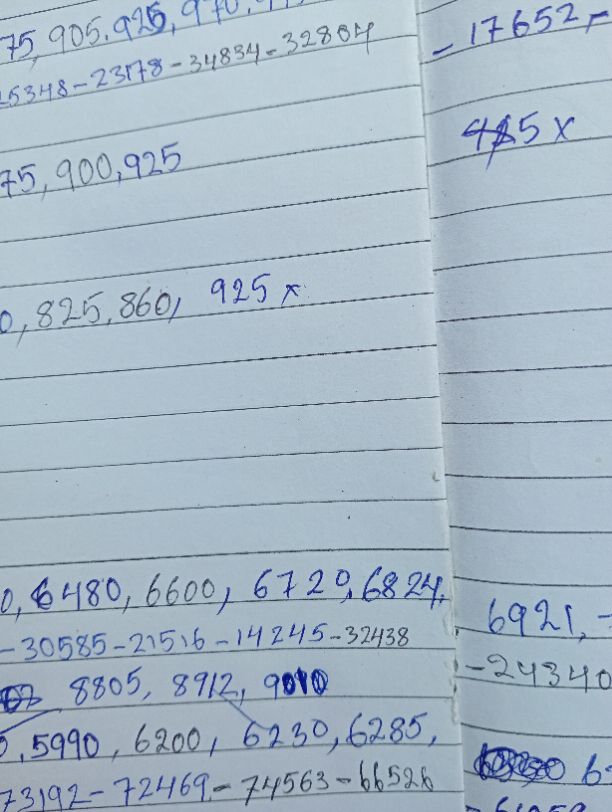 75,905,925,970,
5348-23178-34834-32804
75,900,925
0,825,860, 925 x
0,6480,6600, 6720,6824,
-30585-21516-14245-32438
8805, 8912, 9010
5990, 6200, 6230, 6285,
73192-72469-74563-66526
-17652,-
x
6921,-
-24340